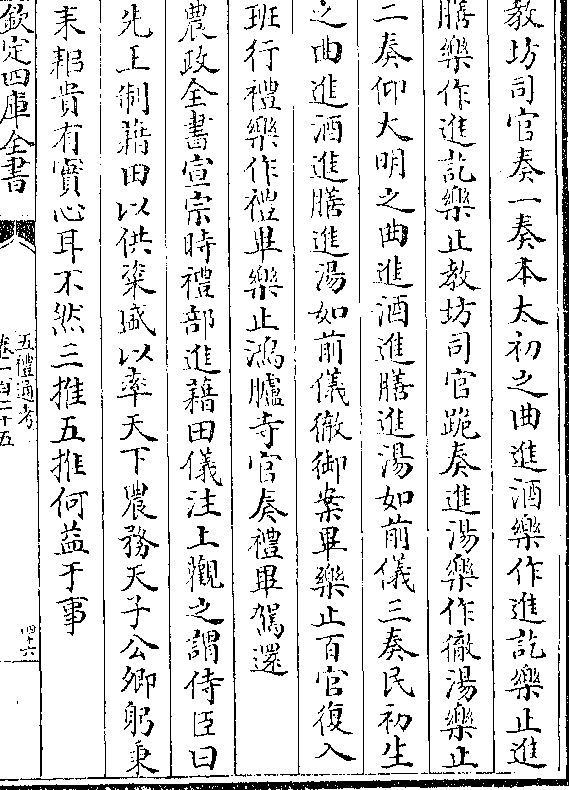 教坊司官奏一奏本太初之曲進酒樂作進訖樂止進
膳樂作進訖樂止教坊司官跪奏進湯樂作徹湯樂止
二奏仰大明之曲進酒進膳進湯如前儀三奏民初生
之曲進酒進膳進湯如前儀徹御案畢樂止百官復入
班行禮樂作禮畢樂止鴻臚寺官奏禮畢駕還
農政全書宣宗時禮部進藉田儀注上觀之謂侍臣曰
先王制藉田以供粢盛以率天下農務天子公卿躬秉
耒耜貴有實心耳不然三推五推何益于事
欽定四庫全書
五禮通考
卷一百二十五
四十六